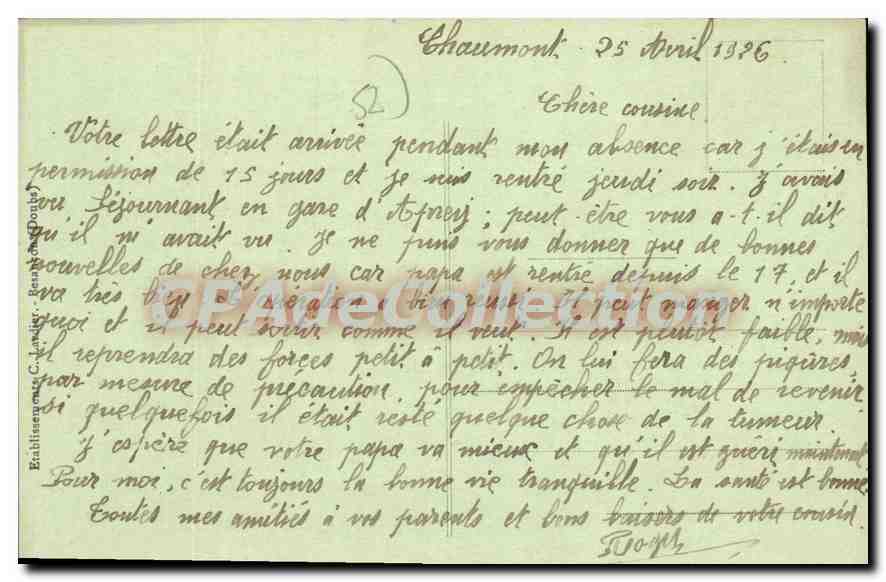 Chaumont. 25 Avril 1926.
52)
Chère cousine
Votre lettre était arrivée pendant mon absence car j'étais en
permission de 15 jours et je suis rentré jeudi soir. J'avais
vu Séjournant en gare d'Aprey; peut-être vous a-t-il dit
qu'il m'avait vu. Je ne puis vous donner que de bonnes
nouvelles de chez nous car papa est rentré depuis le 17, et il
va très bien et l'opération a bien réussi. Il peut manger n'importe
quoi et il peut sortir comme il veut. Il est plutôt faible, mais
il reprendra des forces petit à petit. On lui fera des piqûres,
par mesure de précaution, pour empêcher le mal de revenir
si quelquefois il était resté quelque chose de la tumeur.
J'espère que votre papa va mieux et qu'il est guéri maintenant.
Pour moi, c'est toujours la bonne vie tranquille. La santé est bonne.
Toutes mes amitiés à vos parents et bons baisers de votre cousin.
Etablissements C. Lardier. - Besançon (Doubs)
CPA de Collection